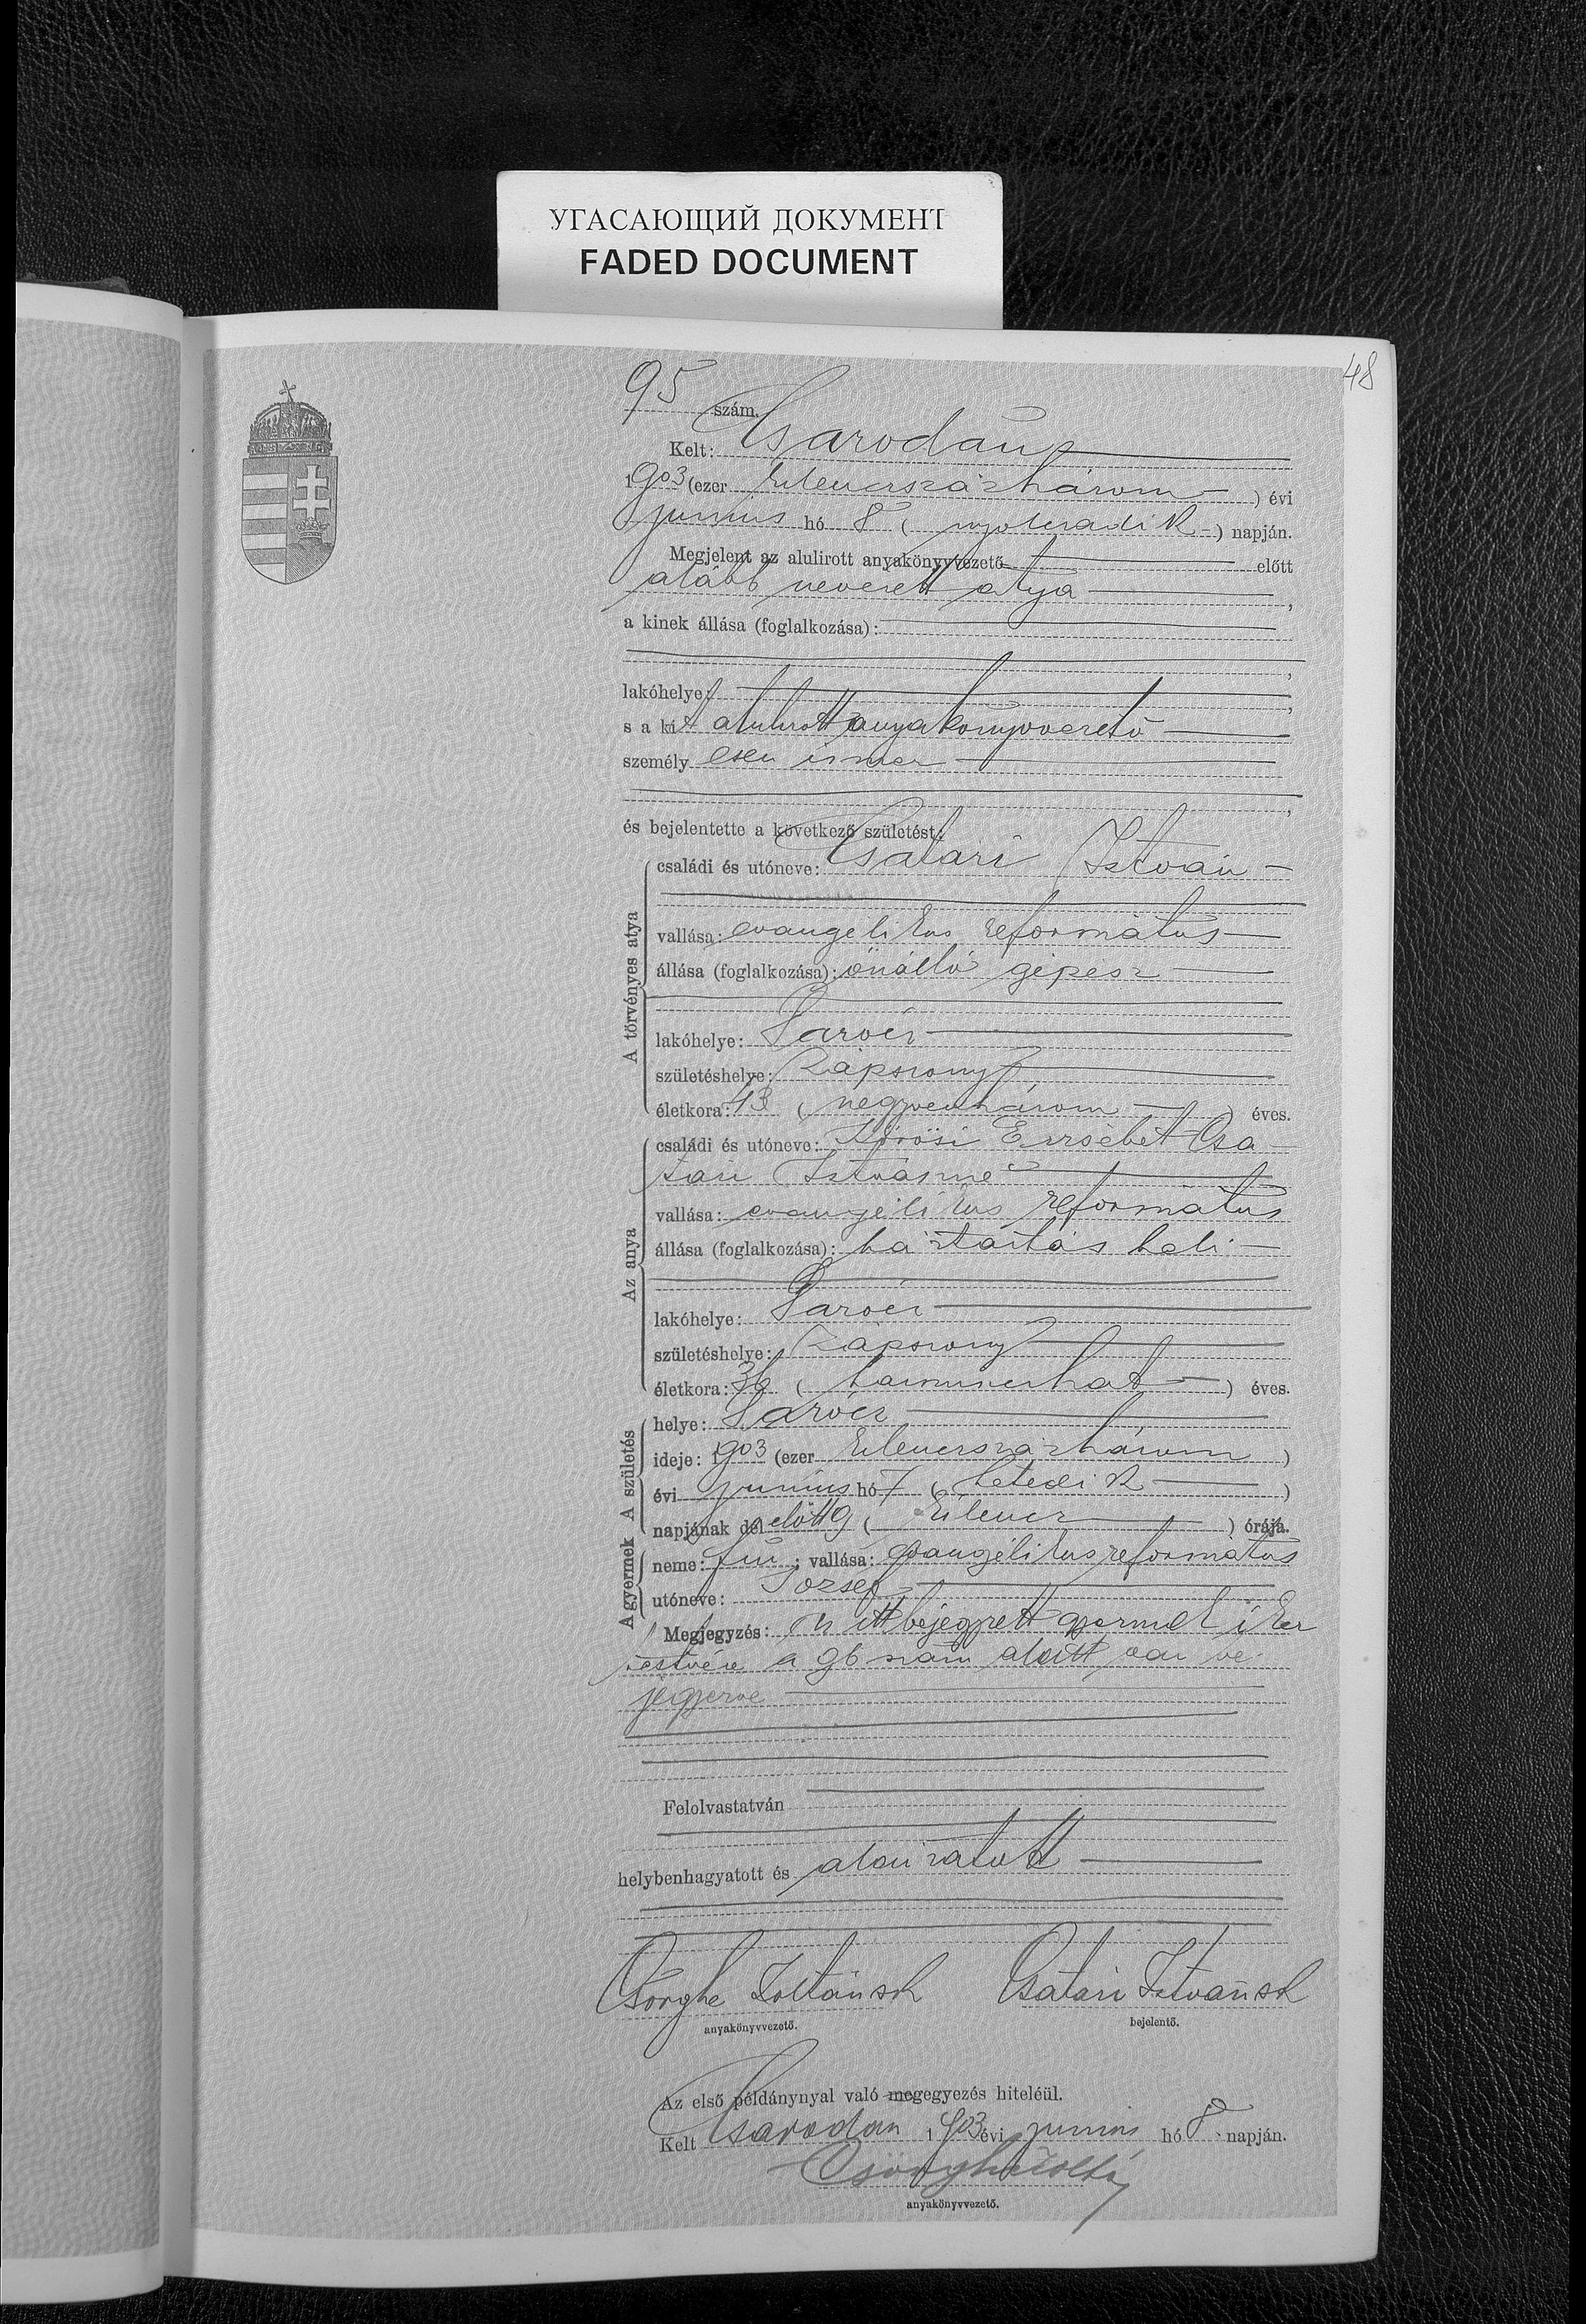 УГАСАЮЩИЙ ДОКУМЕНТ
FADED DOCUMENT
48
95 szám.
Kelt: Csarodán
1903 (ezer kilencszázhárom) évi
junius hó 8 (nyolcadik) napján.
Megjelent az alulirott anyakönyvvezető előtt
alább nevezett atya,
a kinek állása (foglalkozása):
lakóhelye:
s a kit alulirott anyakönyvvezető
személyesen ismer
és bejelentette a következő születést:
A törvényes atya
családi és utóneve: Csatári István
vallása: evangelikus református
állása (foglalkozása): önálló gépész
lakóhelye:
születéshelye: Zápszony
életkora: 43 (negyvenhárom) éves.
Az anya
családi és utóneve: Kőrösi Erzsébet Csa-
tári Istvánné
vallása: evangélikus református
állása (foglalkozása): háztartásbeli
lakóhelye:
születéshelye: Zápszony
életkora: 36 (harminchat) éves.
A születés
helye:
ideje: 1903 (ezer kilencszázhárom)
évi junius hó 7 (hetedik)
napjának délelőtt 9 (kilenc) órája.
A gyermek
neme: fiu; vallása: evangélikus református
utóneve: József
Megjegyzés: Az itt bejegyzett gyermek iker
testvére a 96 szám alatt van be-
jegyezve
Felolvastatván
helybenhagyatott és aláiratott
Csörghe Zoltán sk Csatári István sk
anyakönyvvezető. bejelentő.
Az első példánynyal való megegyezés hiteléül.
Kelt Csarodán 1903 évi junius hó 8 napján.
Csörghe Zoltán
anyakönyvvezető.